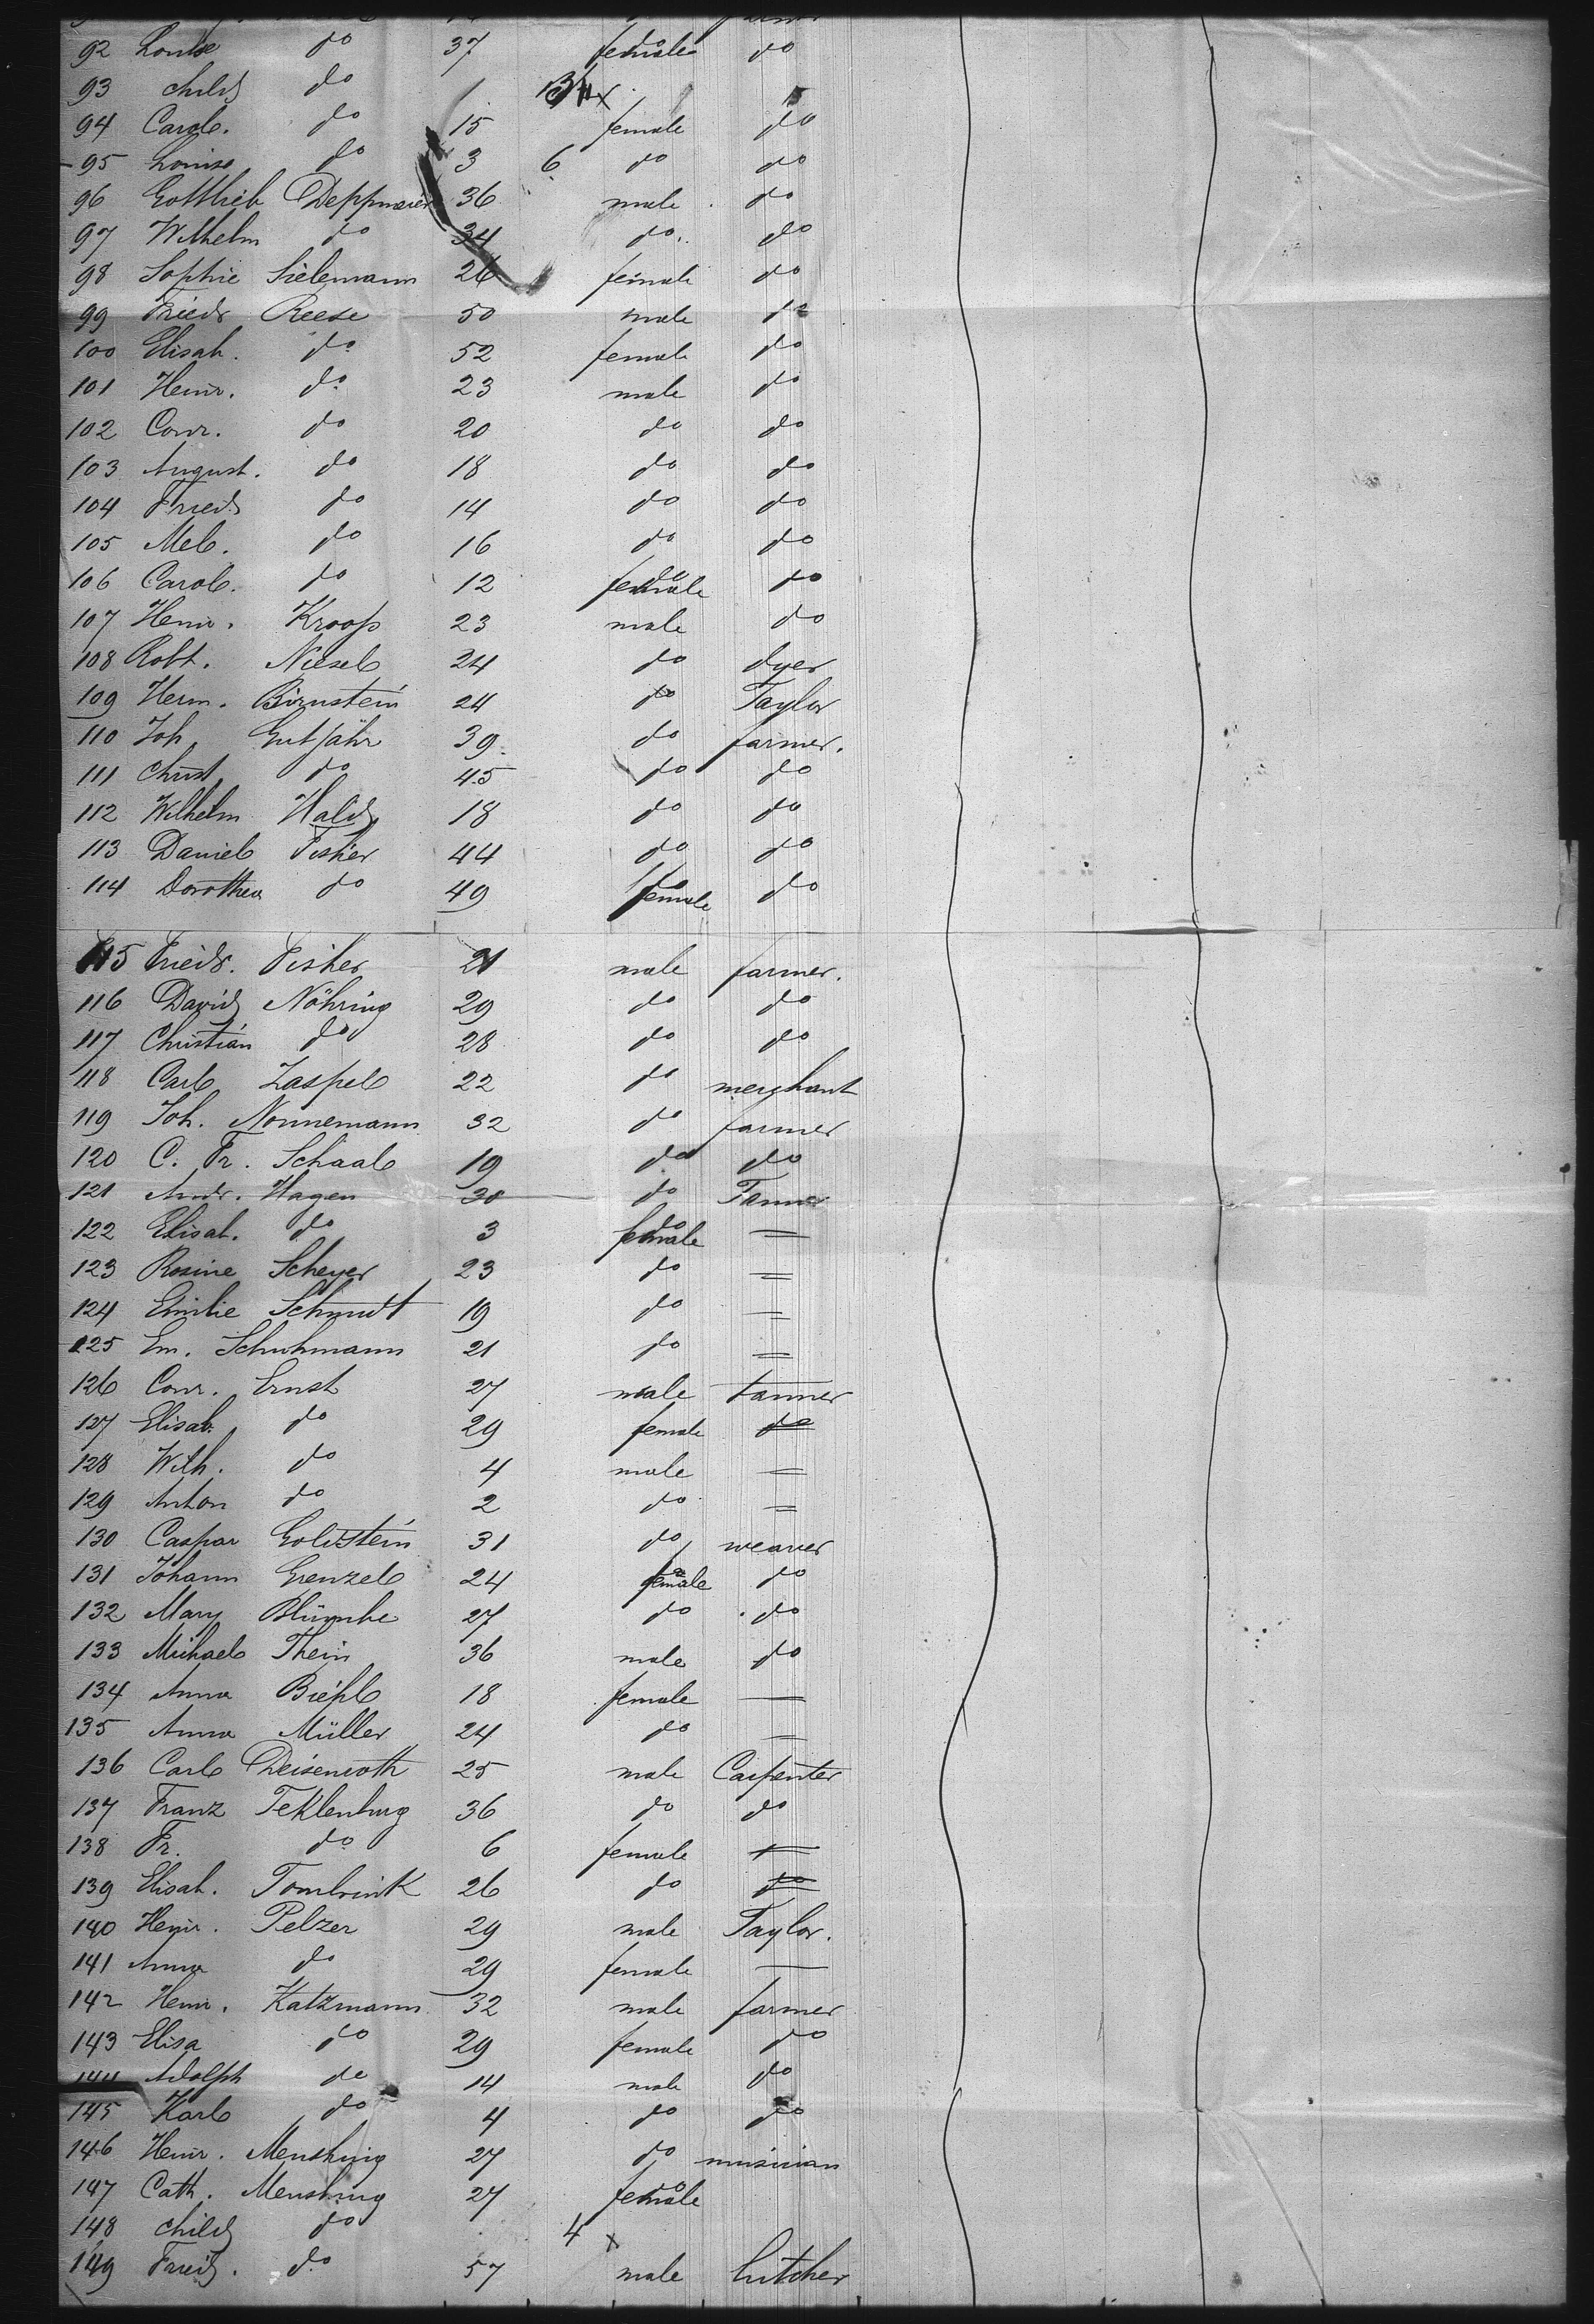 92 Louise do 37 female do
93 child do
94 Carol. do 15 female do
95 Louise do 3 6 do do
96 Gottlieb Deppmeier 36 male do
97 Wilhelm do 34 do do
98 Sophie Sielemann 26 female do
99 Friedr Reese 50 male do
100 Elisab. do 52 female do
101 Heinr. do 23 male do
102 Conr. do 20 do do
103 August. do 18 do do
104 Fried. do 14 do do
105 Mel. do 16 do do
106 Carol. do 12 female do
107 Heinr. Kroop 23 male do
108 Robt. Niesel 24 do dyer
109 Herm. Birnstein 24 do Taylor
110 Joh. Gutjahr 39 do farmer.
111 Christ do 45 do do
112 Wilhelm Hald 18 do do
113 Daniel Fisher 44 do do
114 Dorothea do 49 female do
115 Friedr. Fisher 21 male farmer.
116 David Nöhring 29 do do
117 Christian do 28 do do
118 Carl Zaspel 22 do merchant
119 Joh. Nonnemann 32 do farmer
120 C. Fr. Schaal 19 do do
121 Andr. Hagen 30 do Tanner
122 Elisab. do 3 female =
123 Rosine Scheyer 23 do =
124 Emilie Schmidt 19 do =
125 Em. Schuhmann 21 do =
126 Conr. Ernst 27 male tanner
127 Elisab. do 29 female do
128 Wilh. do 4 male =
129 Anton do 2 do =
130 Caspar Goldstein 31 do weaver
131 Johann Grenzel 24 female do
132 Mary Blümke 27 do do
133 Michael Thein 36 male do
134 Anna Biehl 18 female —
135 Anna Müller 24 do —
136 Carl Deisenroth 25 male Carpenter
137 Franz Teklenburg 36 do do
138 Fr. do 6 female =
139 Elisab. Tombrink 26 do do
140 Heinr. Pelzer 29 male Taylor.
141 Anna do 29 female —
142 Heinr. Katzmann 32 male farmer
143 Elisa do 29 female do
144 Adolph do 14 male do
145 Karl do 4 do do
146 Heinr. Menshing 27 do musician
147 Cath. Menshing 27 female
148 child do 4 x
149 Fried. do 57 male butcher